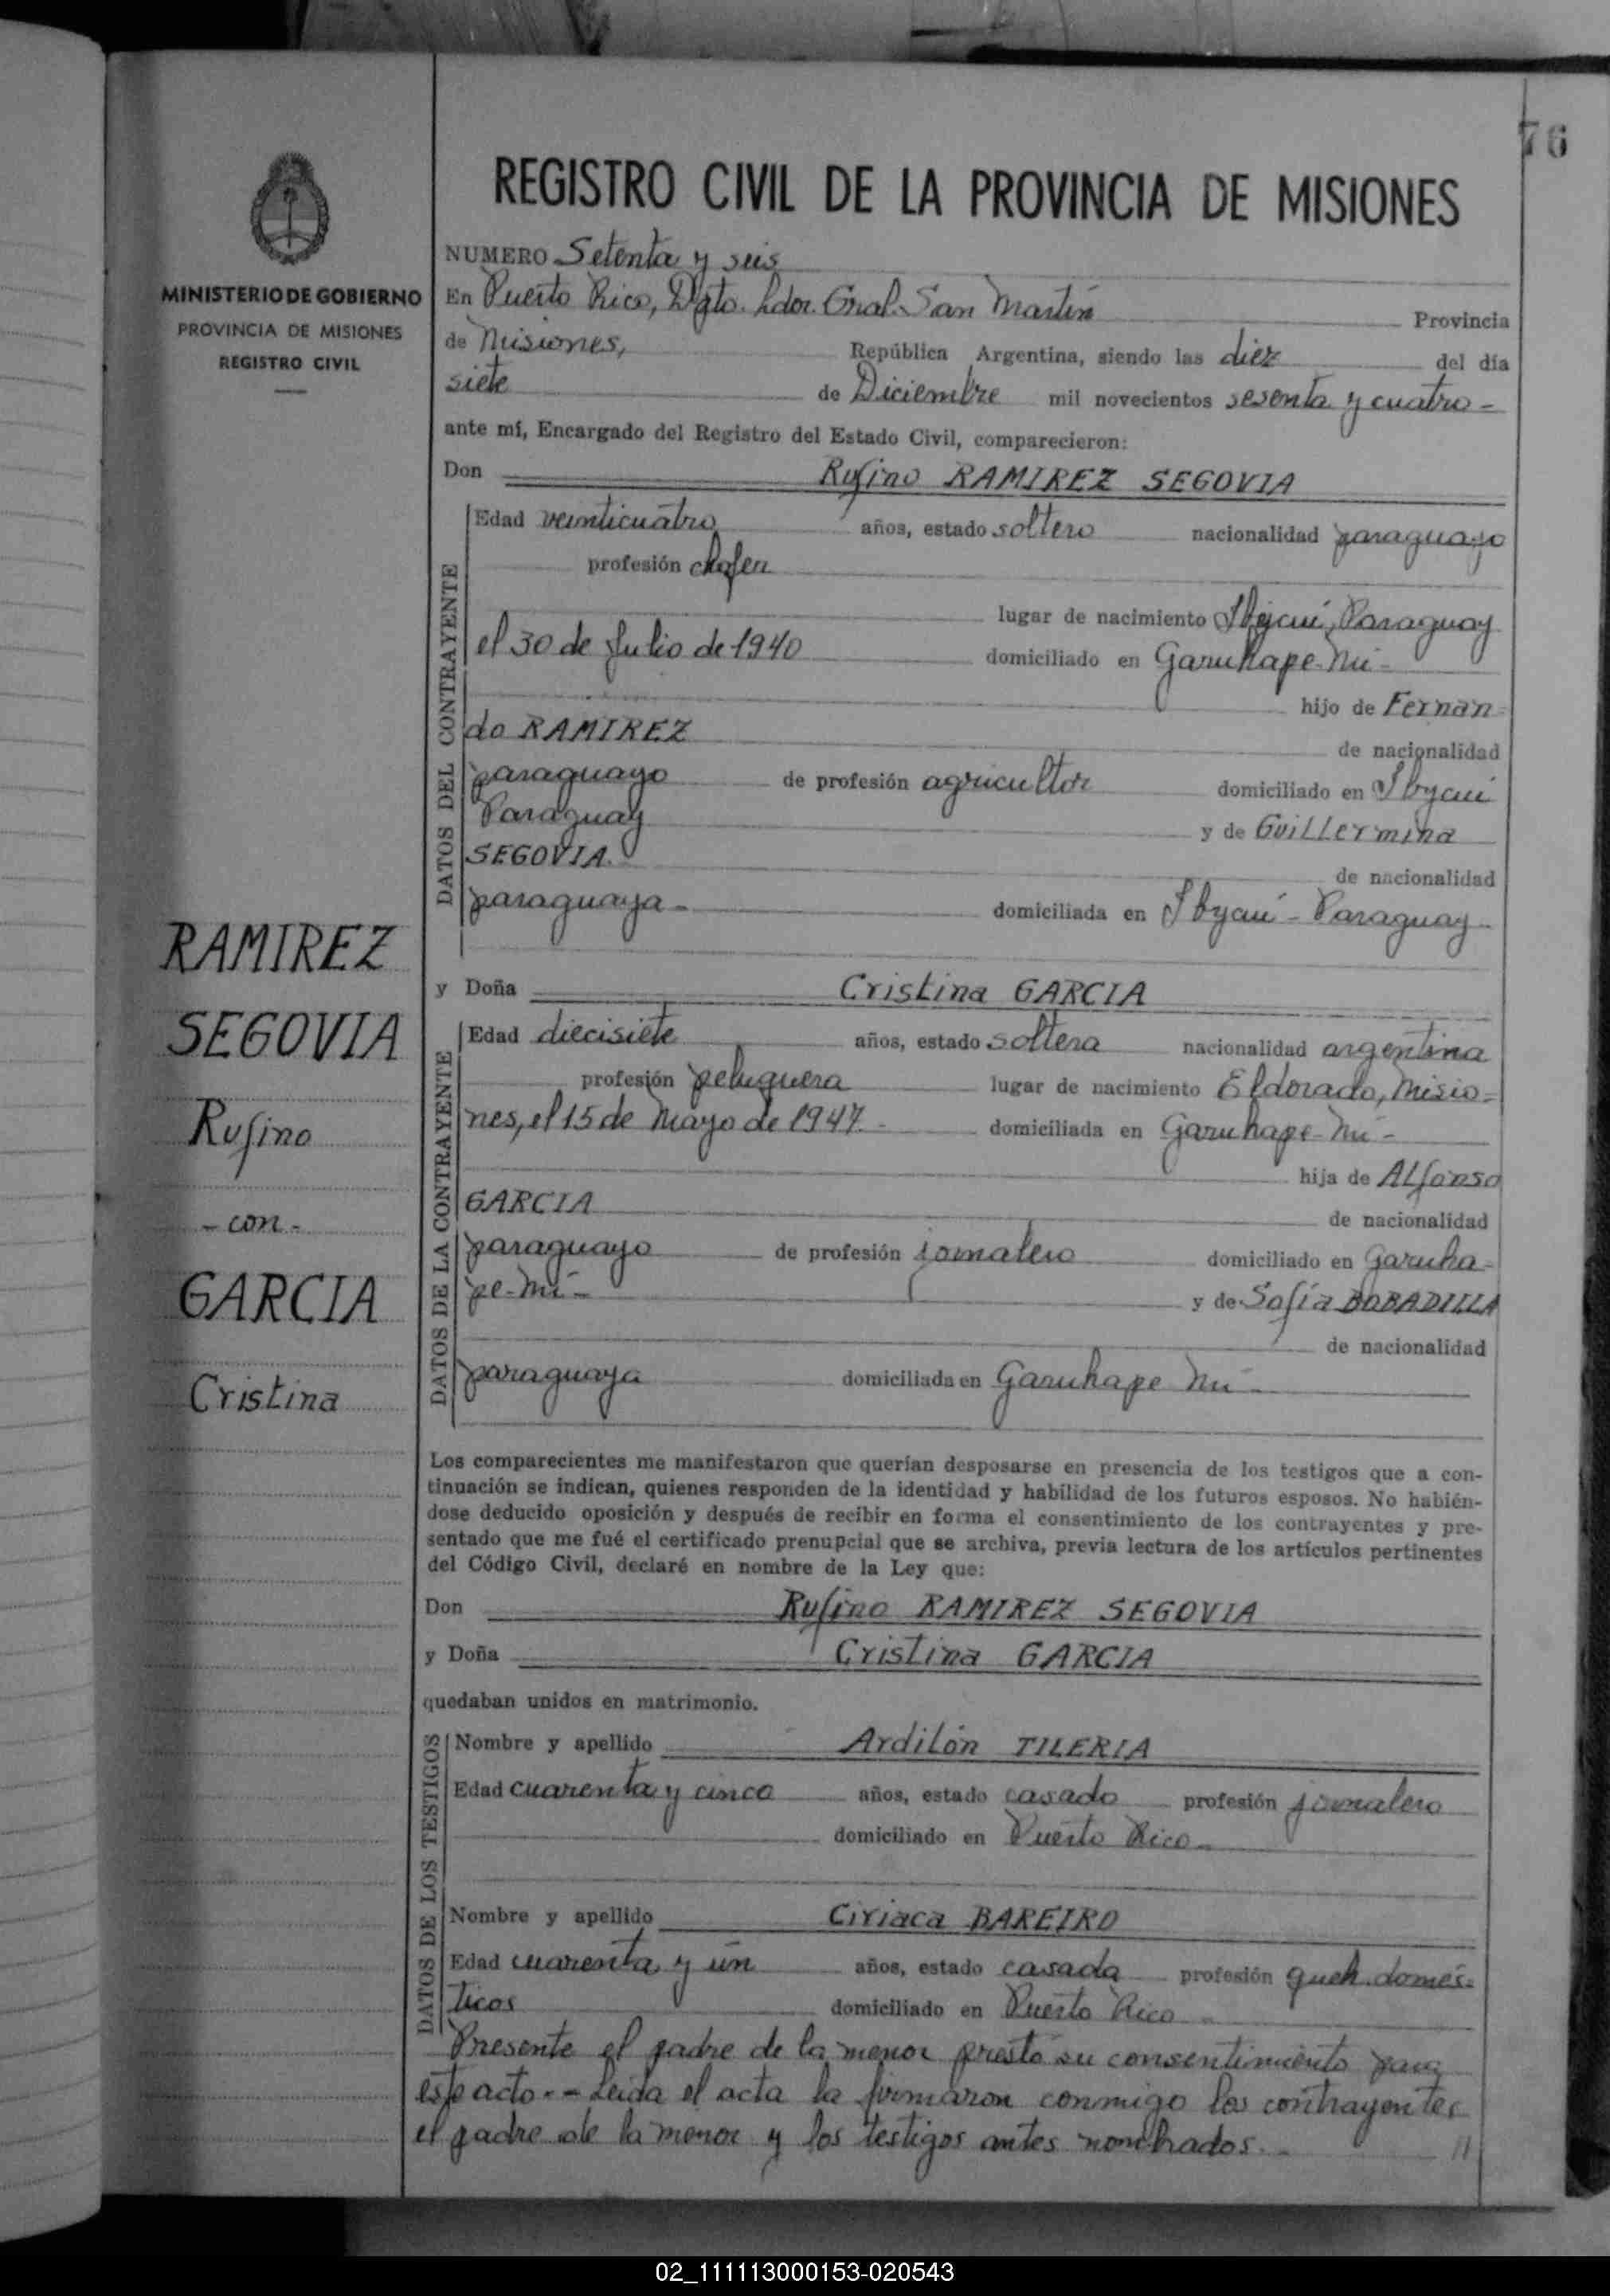 76
REGISTRO CIVIL DE LA PROVINCIA DE MISIONES
MINISTERIO DE GOBIERNO
PROVINCIA DE MISIONES
REGISTRO CIVIL
RAMIREZ
SEGOVIA
Rufino
- con -
GARCIA
Cristina
NUMERO Setenta y seis
En Puerto Rico, Dpto. Ldor. Gral. San Martín Provincia
de Misiones, República Argentina, siendo las diez del día
siete de Diciembre mil novecientos sesenta y cuatro -
ante mí, Encargado del Registro del Estado Civil, comparecieron:
Don Rufino RAMIREZ SEGOVIA
DATOS DEL CONTRAYENTE
Edad veinticuatro años, estado soltero nacionalidad paraguayo
profesión chofer
lugar de nacimiento Ibycuí, Paraguay
el 30 de Julio de 1940 domiciliado en Garuhape-Mi -
hijo de Fernan=
do RAMIREZ de nacionalidad
paraguayo de profesión agricultor domiciliado en Ibycuí
Paraguay y de Guillermina
SEGOVIA. de nacionalidad
paraguaya - domiciliada en Ibycuí - Paraguay -
y Doña Cristina GARCIA
DATOS DE LA CONTRAYENTE
Edad diecisiete años, estado soltera nacionalidad argentina
profesión peluquera lugar de nacimiento Eldorado, Misio=
nes, el 15 de Mayo de 1947. - domiciliada en Garuhape-Mi -
hija de Alfonso
GARCIA de nacionalidad
paraguayo de profesión jornalero domiciliado en Garuha=
pe-Mi - y de Sofía BOBADILLA
de nacionalidad
paraguaya domiciliada en Garuhape Mi -
Los comparecientes me manifestaron que querían desposarse en presencia de los testigos que a con-
tinuación se indican, quienes responden de la identidad y habilidad de los futuros esposos. No habién-
dose deducido oposición y después de recibir en forma el consentimiento de los contrayentes y pre-
sentado que me fué el certificado prenupcial que se archiva, previa lectura de los artículos pertinentes
del Código Civil, declaré en nombre de la Ley que:
Don Rufino RAMIREZ SEGOVIA
y Doña Cristina GARCIA
quedaban unidos en matrimonio.
DATOS DE LOS TESTIGOS
Nombre y apellido Ardilón TILERIA
Edad cuarenta y cinco años, estado casado profesión jornalero
domiciliado en Puerto Rico -
Nombre y apellido Ciriaca BAREIRO
Edad cuarenta y un años, estado casada profesión queh. domés=
ticos domiciliado en Puerto Rico -
Presente el padre de la menor prestó su consentimiento para
este acto. - Leída el acta la firmaron conmigo los contrayentes
el padre de la menor y los testigos antes nombrados. - //
02_111113000153-020543